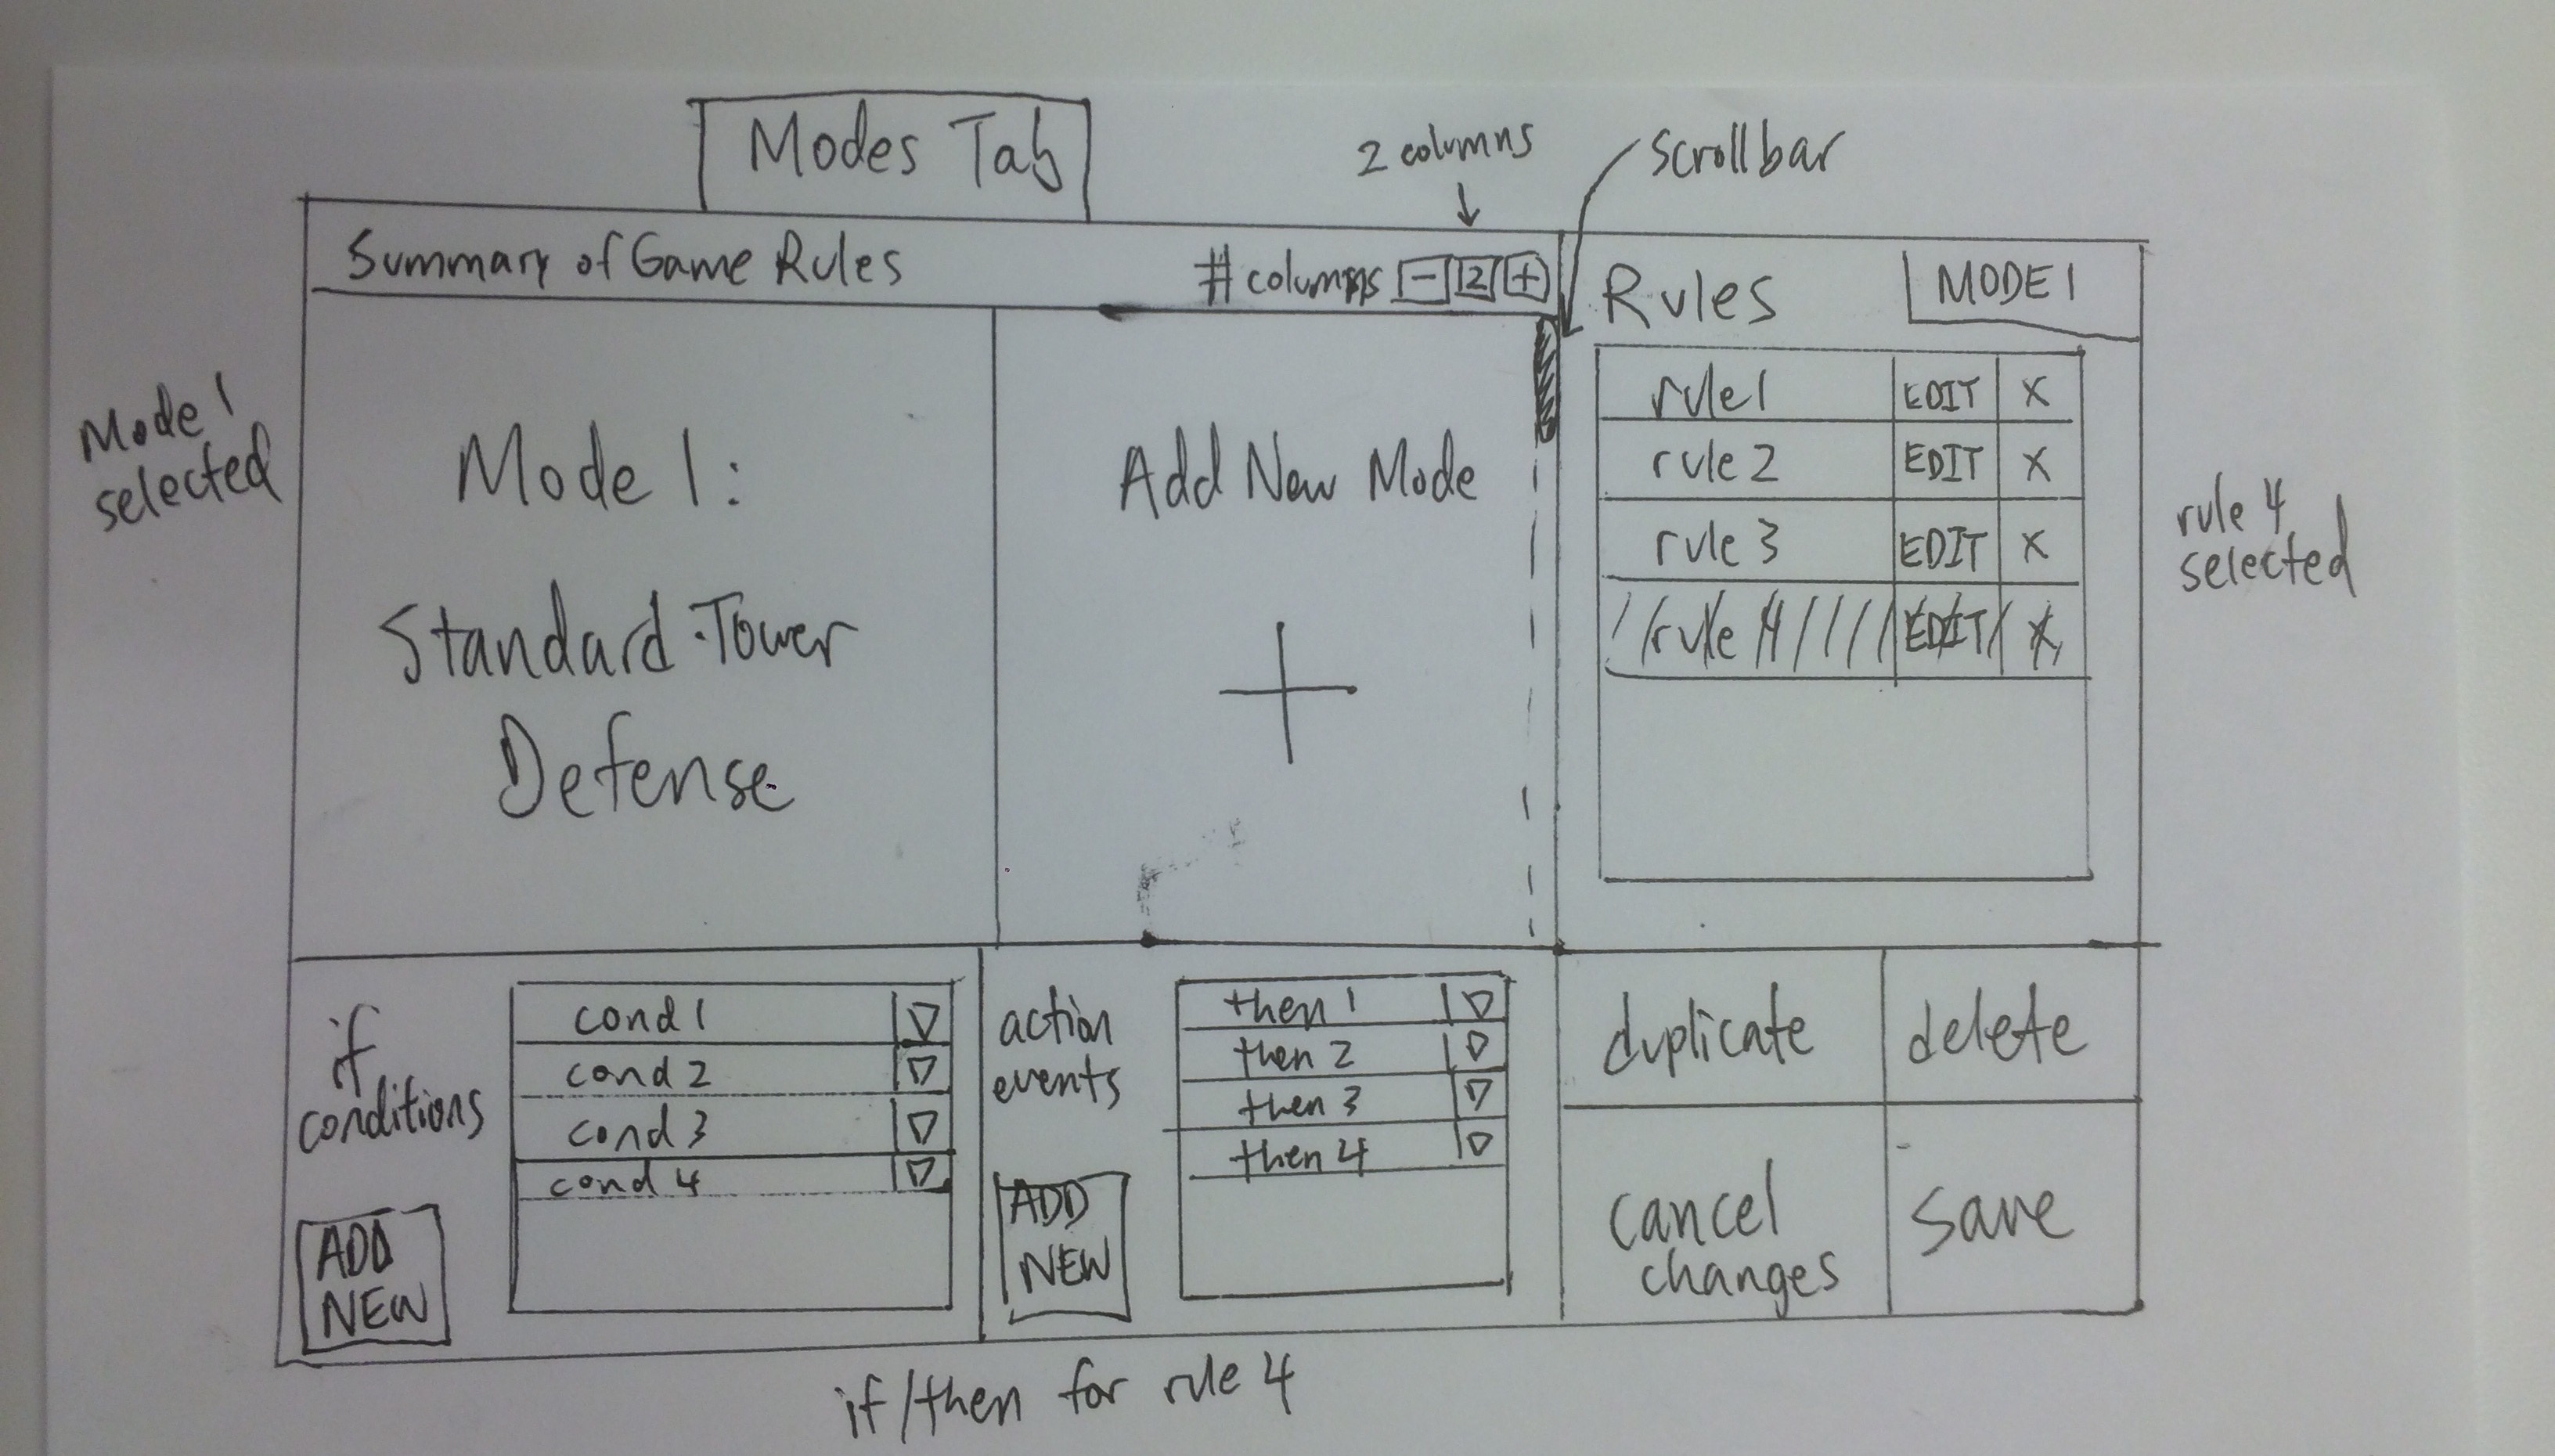 Modes Tab
2 columns
scrollbar
Summary of Game Rules
# columns - 2 +
Rules
MODE 1
Mode 1
selected
Mode 1:
Standard Tower
Defense
Add New Mode
+
rule 1 EDIT X
rule 2 EDIT X
rule 3 EDIT X
rule 4 EDIT X
rule 4
selected
if
conditions
ADD
NEW
cond 1
cond 2
cond 3
cond 4
action
events
ADD
NEW
then 1
then 2
then 3
then 4
duplicate
delete
cancel
changes
save
if/then for rule 4